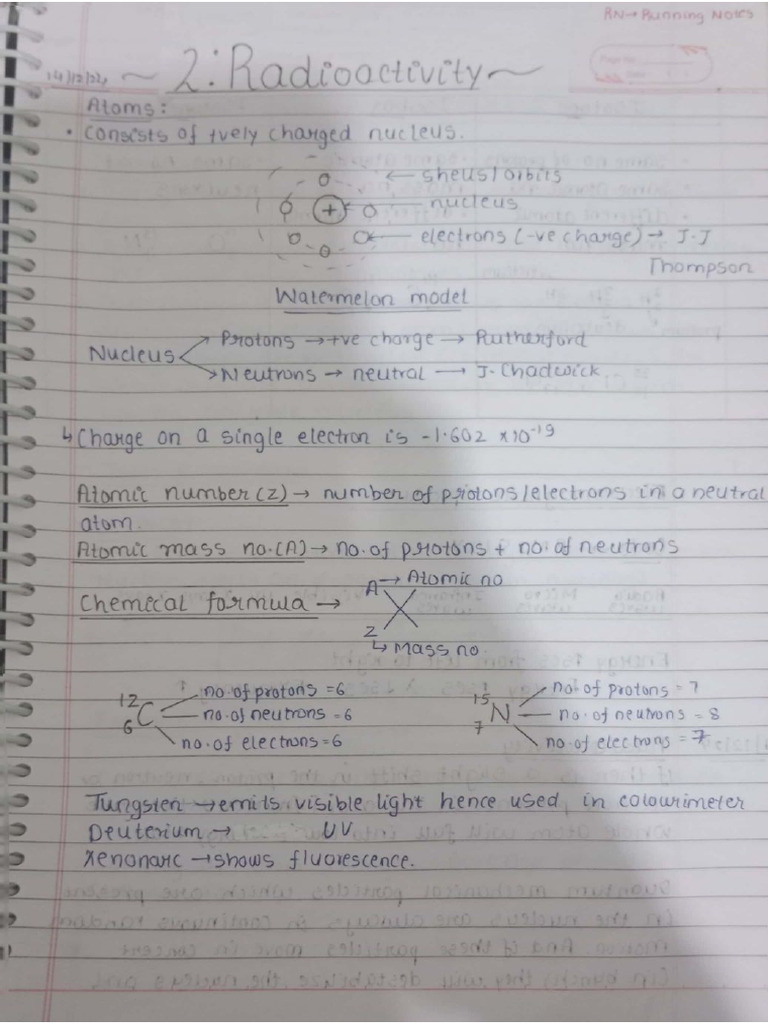 RN→ Running Notes
2: Radioactivity
Atoms:
• consists of +vely charged nucleus.
← shells/orbits
+ ← nucleus
← electrons (-ve charge) → J.J
Thompson
Watermelon model
Nucleus → Protons → +ve charge → Rutherford
→ Neutrons → neutral → J. Chadwick
↳ Charge on a single electron is -1.602 × 10⁻¹⁹
Atomic number (Z) → number of protons/electrons in a neutral
atom.
Atomic mass no. (A) → no. of protons + no. of neutrons
A → Atomic no
Chemical formula → X
Z
↳ Mass no.
12 6 C no. of protons = 6
no. of neutrons = 6
no. of electrons = 6
15 7 N no. of protons = 7
no. of neutrons = 8
no. of electrons = 7
Tungsten → emits visible light hence used in colourimeter
Deuterium → UV
Xenonarc → shows fluorescence.